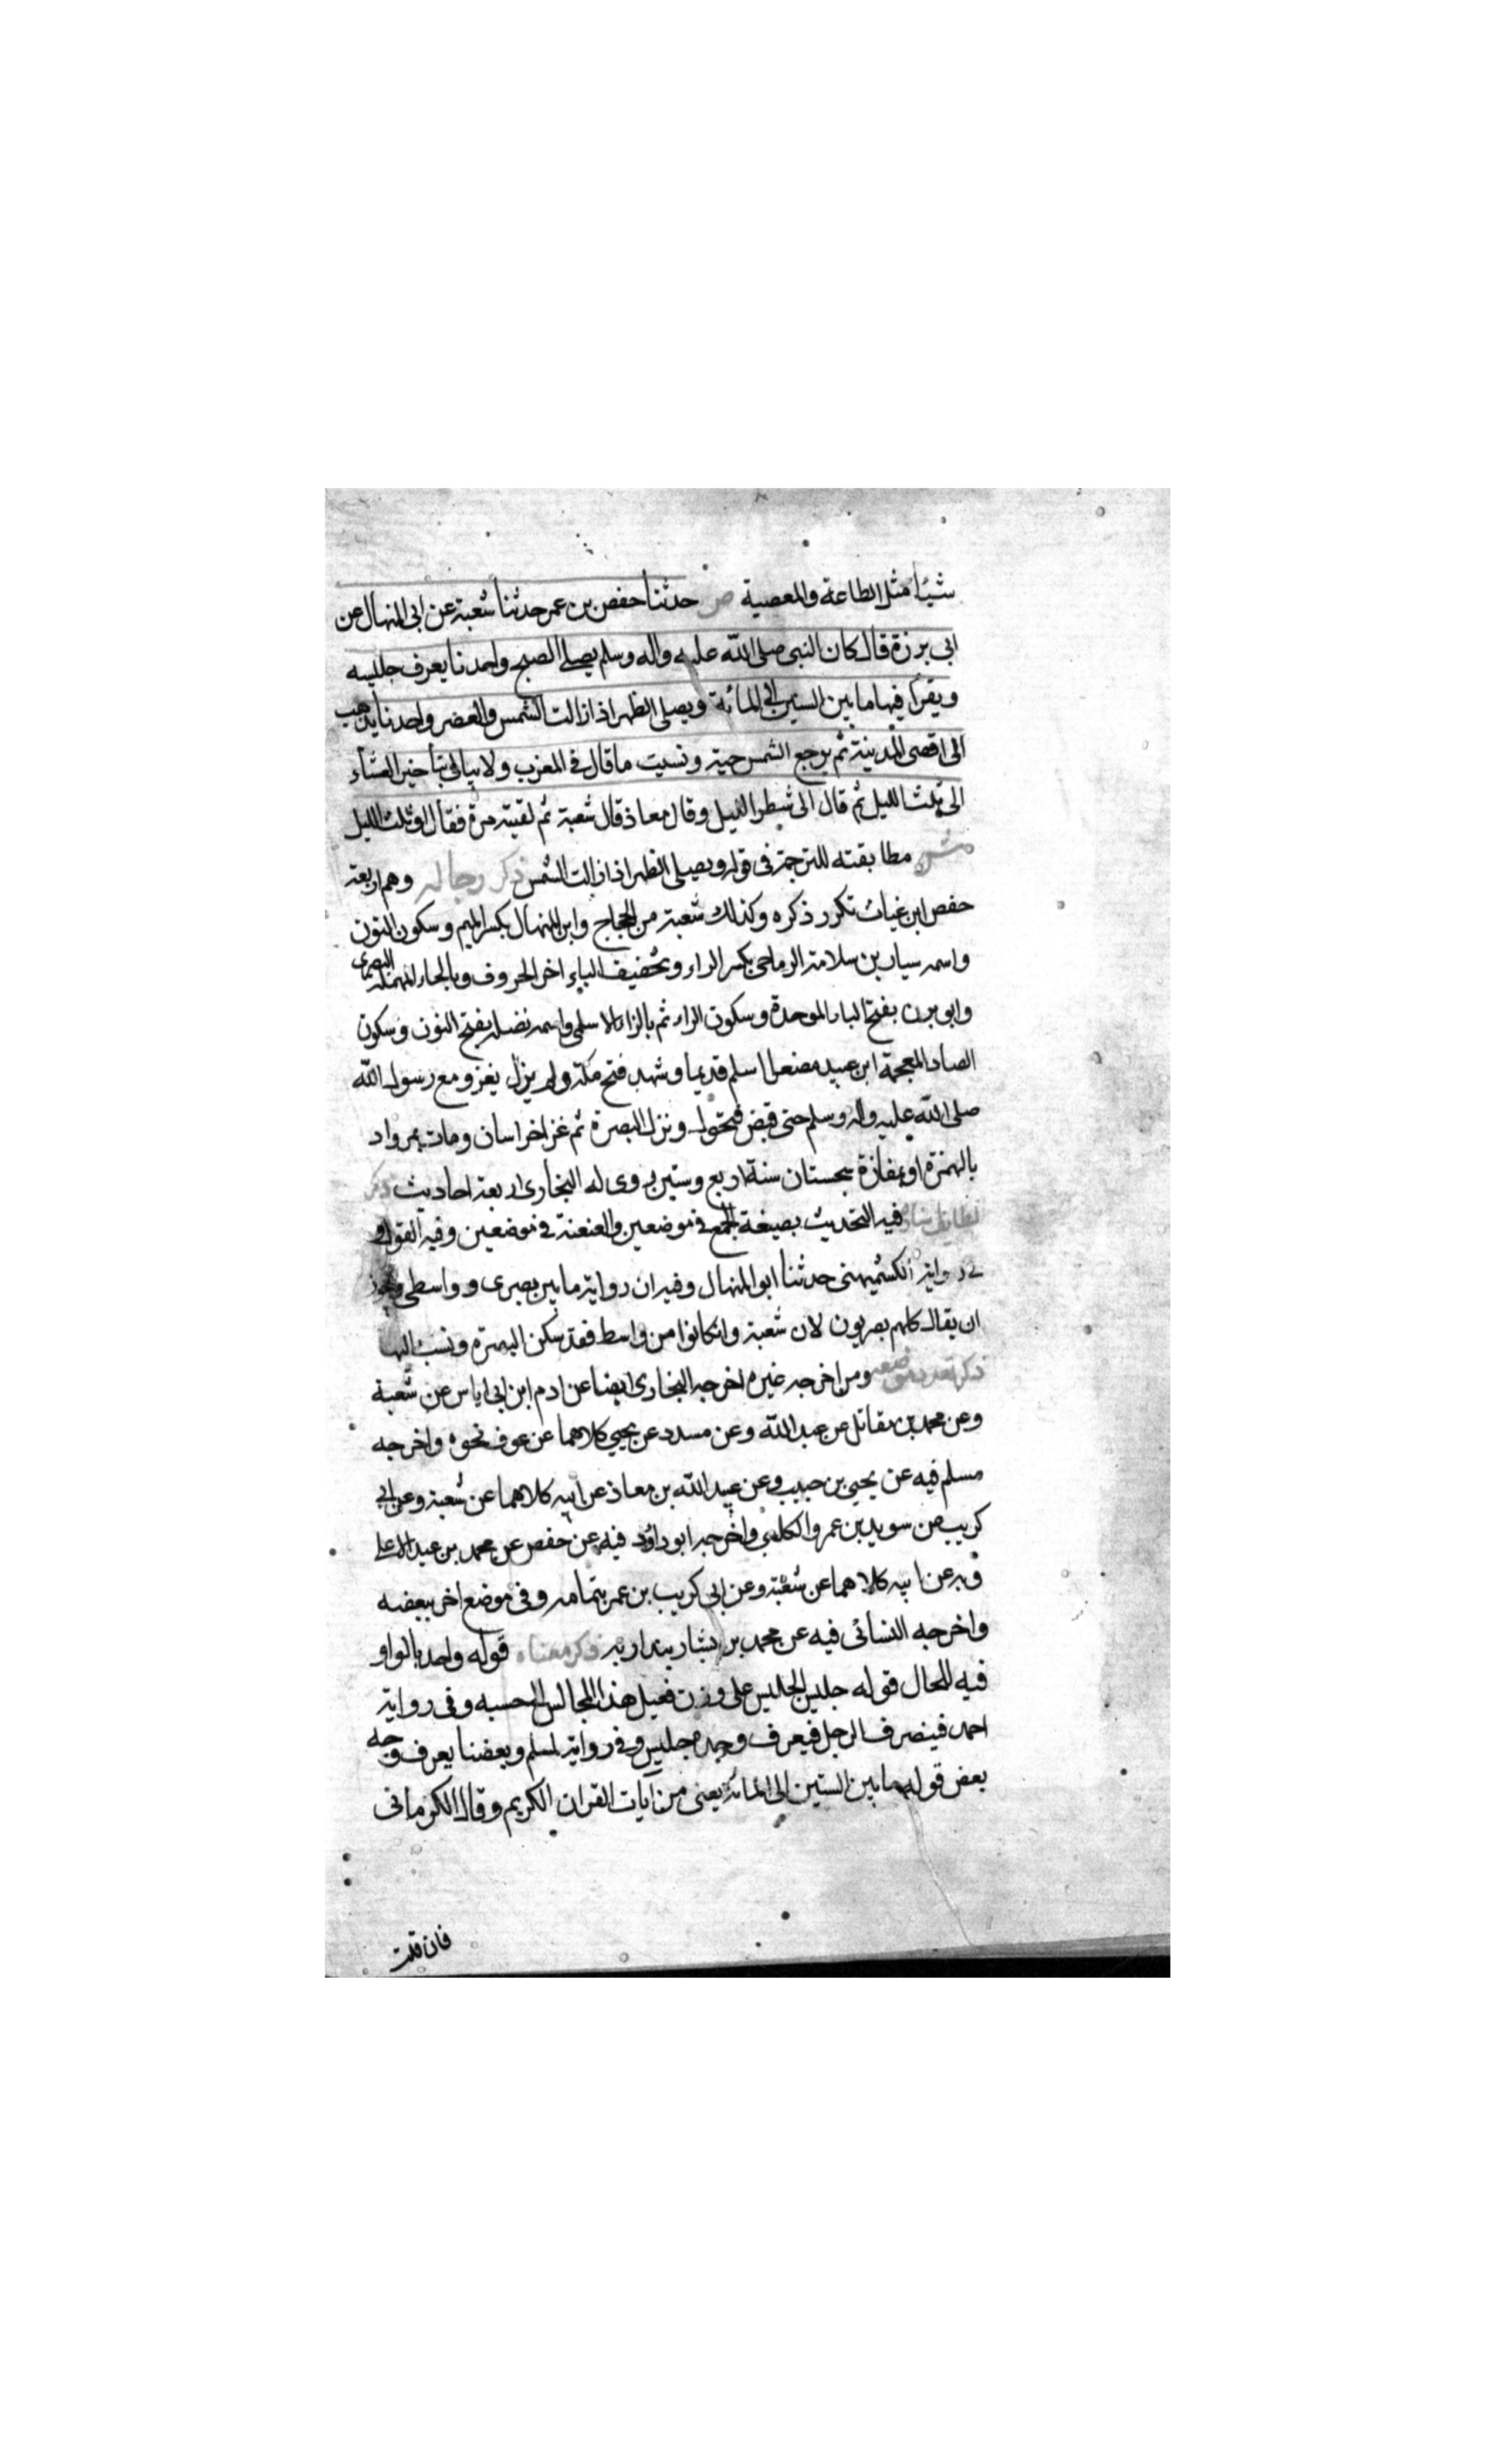 شيئا مثل الطاعة والمعصية ص حدثنا حفص بن عمر حدثنا شعبة عن ابى المنهال عن
ابى برزة قال كان النبى صلى الله عليه واله وسلم يصلى الصبح واحدنا يعرف جليسه
ويقرأ فيها ما بين الستين الى المائة ويصلى الظهر اذا زالت الشمس والعصر واحدنا يذهب
الى اقصى المدينة ثم يرجع الشمس حية ونسيت ما قال فى المغرب ولا يبالى بتأخير العشاء
الى ثلث الليل ثم قال الى شطر الليل وقال معاذ قال شعبة ثم لقيته مرة فقال او ثلث الليل
ش مطابقته للترجمة فى قوله ويصلى الظهر اذا زالت الشمس ذكر رجاله وهم اربعة
حفص ابن غياث تكرر ذكره وكذلك شعبة من الحجاج وابن المنهال بكسر الميم وسكون النون
واسمه سيار بن سلامة الرماحى بكسر الراء وتخفيف الياء اخر الحروف وبالحاء المهملة البصرى
وابو برزة بفتح الباء الموحدة وسكون الراء ثم بالزاء الاسلمى واسمه نضلة بفتح النون وسكون
الصاد المعجمة ابن عبيد مصغرا اسلم قديما وشهد فتح مكة ولم يزل يغزو مع رسول الله
صلى الله عليه واله وسلم حتى قبض فتحول ونزل البصرة ثم غزا خراسان ومات بمرو اد
بالهمزة او بمفازة سجستان سنة اربع وستين روى له البخارى اربعة احاديث ذكر
لطايف اسناده فيه التحديث بصيغة الجمع فى موضعين والعنعنة فى موضعين وفيه القول و
فى رواية الكشميهنى حدثنا ابو المنهال وفيه ان رواية ما بين بصرى وواسطى ويجوز
ان يقال كلهم بصريون لان شعبة وان كانوا من واسط فقد سكن البصرة ونسب اليها
ذكر تعدد موضعه ومن اخرجه غيره اخرجه البخارى ايضا عن ادم ابن ابى اياس عن شعبة
وعن محمد بن مقاتل عن عبد الله وعن مسدد عن يحيى كلاهما عن عوف نحوه واخرجه
مسلم فيه عن يحيى بن حبيب وعن عبيد الله بن معاذ عن ابيه كلاهما عن شعبة وعن ابى
كريب عن سويد بن عمرو الكلبى واخرجه ابو داؤد فيه عن حفص عن محمد بن عبد الاعلى
وبه عن ابيه كلاهما عن شعبة وعن ابى كريب بن عمر بتمامه وفى موضع اخر ببعضه
واخرجه النسائى فيه عن محمد بن بشار بندار به ذكر معناه قوله واحد بالواو
فيه للحال قوله جليس الجليس على وزن فعيل هذا المجالس الحسبه وفى رواية
احمد فينصرف الرجل فيعرف وجه جليس وفى رواية لمسلم وبعضنا يعرف وجه
بعض قوله ما بين الستين الى المائة يعنى من آيات القران الكريم وقال الكرمانى
فان قلت